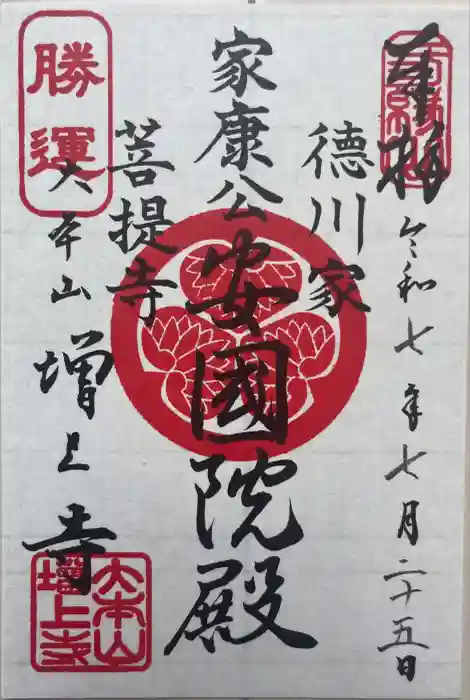 奉拝
令和七年七月二十五日
徳川家
家康公安國院殿
菩提寺
勝運
大本山増上寺
大本山
増上寺